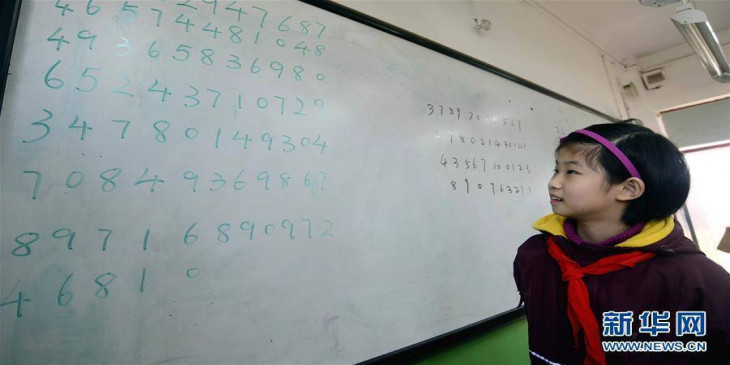 4 6 5 7 4 4 8 1 0 4 8
4 9 3 6 5 8 3 6 9 8 0
6 5 2 2 4 3 7 1 0 7 2 9
3 4 7 8 0 1 4 9 3 0 4
7 0 8 4 9 9 3 6 9 8 6 7
8 9 7 1 6 8 9 0 9 7 2
4 6 8 1 0
1 8 0 2 1 4 3 1 1 0 1
4 3 5 6 7 1 0 0 1 2 3
8 9 0 9 6 3 2 1 1
新华网
WWW.NEWS.CN